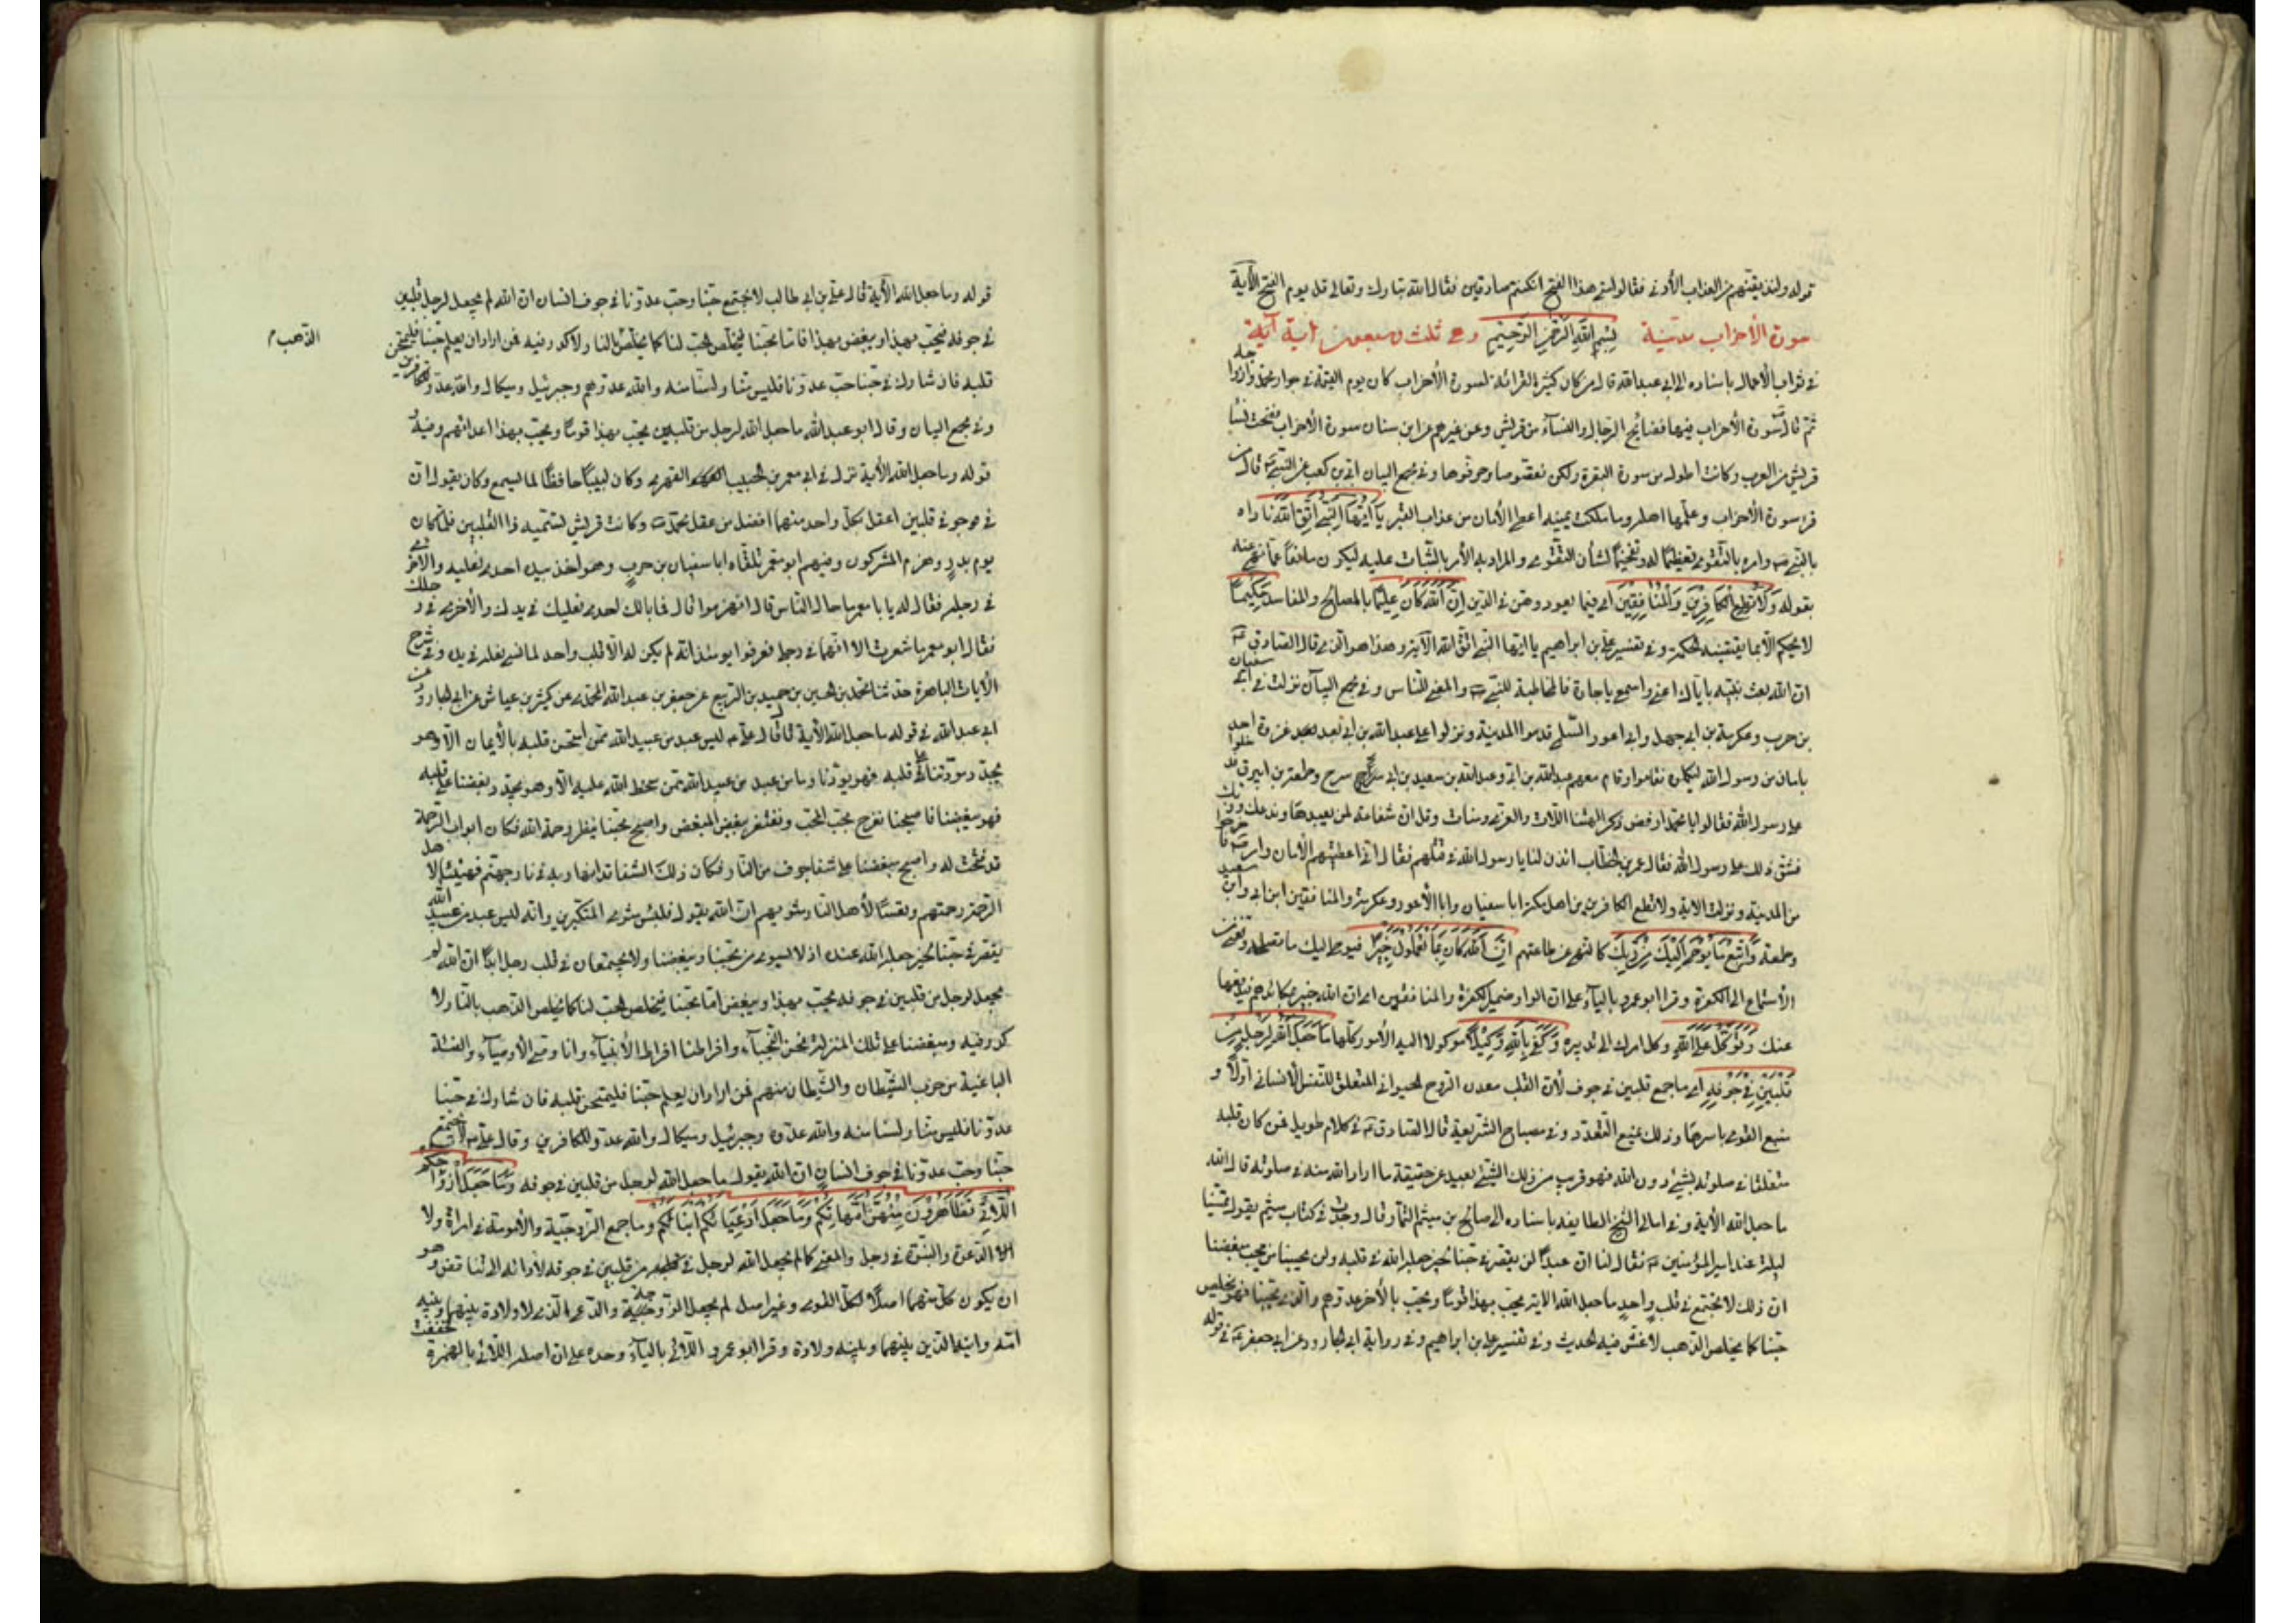 قوله ولنذيقنهم من العذاب الأدنى فقالوا متى هذا الفتح ان كنتم صادقين فقال الله تبارك وتعالى قل يوم الفتح الآية
سورة الأحزاب مدنية بسم الله الرحمن الرحيم وهي ثلث وسبعون آية
في ثواب الاعمال باسناده الى ابي عبد الله قال من كان كثير القرائة لسورة الأحزاب كان يوم القيمة في جوار محمد وازواجه
ثم قال سورة الأحزاب فيها فضائح الرجال والنسآء من قريش وغيرهم يا ابن سنان سورة الأحزاب فضحت نسآء
قريش من العرب وكانت اطول من سورة البقرة ولكن نقصوها وحرفوها وفي مجمع البيان ابي بن كعب عن النبي قال من
قرء سورة الأحزاب وعلمها اهله وما ملكت يمينه اعطي الأمان من عذاب القبر يا أيها النبي اتق الله ناداه
بالنبي وامره بالتقوى تعظيما له وتفخيما لشأن التقوى والمراد به الأمر بالثبات عليه ليكون مانعا عما نهى عنه
بقوله ولا تطع الكافرين والمنافقين اي فيما يعود بوهن في الدين ان الله كان عليما بالمصالح والمفاسد حكيما
لا يحكم الا بما يقتضيه الحكمة وفي تفسير علي بن ابراهيم يا ايها النبي اتق الله الآية وهذا هو الذي قال الصادق
ان الله بعث نبيه باياك اعني واسمعي يا جارة فالمخاطبة للنبي والمعنى للناس وفي مجمع البيان نزلت في ابي سفيان
بن حرب وعكرمة بن ابي جهل وابي اعور السلمي قدموا المدينة ونزلوا على عبد الله بن ابي بعد غزوة احد
بامان من رسول الله ليكلموه فقاموا وقام معهم عبد الله بن ابي وعبد الله بن سعيد بن ابي سرح وطعمة بن ابيرق فدخلوا
على رسول الله فقالوا يا محمد ارفض ذكر الهتنا اللات والعزى ومنات وقل ان شفاعة لمن يعبدها وندعك وربك
فشق ذلك على رسول الله فقال عمر بن الخطاب ائذن لنا يا رسول الله في قتلهم فقال اني اعطيتهم الأمان وامر فاخرجوا
من المدينة ونزلت الاية ولا تطع الكافرين من اهل مكة ابا سفيان وابا الأعور وعكرمة والمنافقين ابن ابي وابن سعيد
وطعمة واتبع ما يوحى اليك من ربك كالنهي عن طاعتهم ان الله كان بما تعملون خبيرا فيوحي اليك ما تصلحه ويغني عن
الأستماع الى الكفرة وقرا ابو عمرو باليآء على ان الواو ضمير الكفرة والمنافقين اي ان الله خبير بمكائدهم فيدفعها
عنك وتوكل على الله وكل امرك الى تدبيره وكفى بالله وكيلا موكولا اليه الأمور كلها ما جعل الله لرجل من
قلبين في جوفه اي ما جمع قلبين في جوف لأن القلب معدن الروح الحيواني المتعلق للنفس الأنساني اولا و
منبع القوى باسرها وذلك يمنع التعدد وفي مصباح الشريعة قال الصادق في كلام طويل فمن كان قلبه
متعلقا في صلوته بشيء دون الله فهو قريب من ذلك الشيء بعيد عن حقيقة ما اراد الله منه في صلوته قال الله
ما جعل الله الأية وفي امالي الشيخ الطايفة باسناده الى صالح بن ميثم التمار قال وجدت في كتاب ميثم يقول تمسينا
ليلة عند امير المؤمنين فقال لنا ان عبدا لن يقصر في حبنا لخير جعله الله في قلبه ولن يحبنا من يحب مبغضنا
ان ذلك لا يجتمع في قلب واحد ما جعل الله الاية يحب بهذا قوما ويحب بالأخر عدوهم والذي يحبنا فهو يخلص
حبنا كما يخلص الذهب لا غش فيه الحديث وفي تفسير علي بن ابراهيم وفي رواية ابي الجارود عن ابي جعفر في قوله
قوله وما جعل الله الآية قال علي بن ابي طالب لا يجتمع حبنا وحب عدونا في جوف انسان ان الله لم يجعل لرجل قلبين
في جوفه فيحب بهذا ويبغض بهذا فاما محبنا فيخلص الحب لنا كما يخلص بالنار لا كدر فيه فمن اراد ان يعلم حبنا فليمتحن
الذهب م
قلبه فان شارك في حبنا حب عدونا فليس منا ولسنا منه والله عدوهم وجبرئيل وميكال والله عدو للكافرين
وفي مجمع البيان وقال ابو عبد الله ما جعل الله لرجل من قلبين يحب بهذا قوما ويحب بهذا اعدائهم وفيه
قوله وما جعل الله الأية نزل في ابي معمر بن حبيب الفهري وكان لبيبا حافظا لما يسمع وكان يقول ان
في جوفي قلبين اعقل بكل واحد منهما افضل من عقل محمد وكانت قريش تسميه ذا القلبين فلما كان
يوم بدر وهزم المشركون وفيهم ابو معمر تلقاه ابا سفيان بن حرب وهو اخذ بيده احدى نعليه والأخرى
في رجله فقال له يا با معمر ما حال الناس قال انهزموا قال فما بالك احدى نعليك في يدك والأخرى في رجلك
فقال ابو معمر ما شعرت الا انهما في رجلي فعرفوا يومئذ انه لم يكن له الا قلب واحد لما نسي نعله في يده وفي شرح
الأيات الباهرة حدثنا محمد بن الحسين بن حميد بن الربيع عن جعفر بن عبد الله المحمدي عن كثير بن عياش عن ابي الجارود عن
ابي عبد الله في قوله ما جعل الله الأية قال قال علي ليس عبد من عبيد الله ممن امتحن قلبه بالأيمان الا وهو
يجد مودتنا على قلبه فهو يودنا وما من عبد من عبيد الله ممن سخط الله عليه الا وهو يجد بغضنا على قلبه
فهو يبغضنا فاصبحنا نفرح بحب المحب ونغتفر ببغض المبغض واصبح محبنا ينتظر رحمة الله فكان ابواب الرحمة
قد فتحت له واصبح مبغضنا على شفا جرف من النار فكان ذلك الشفا قد انهار به في نار جهنم فهنيئا لأهل
الرحمة رحمتهم وتعسا لأهل النار مثويهم ان الله يقول فلبئس مثوى المتكبرين وانه ليس عبد من عبيد الله
يقصر في حبنا لخير جعله الله عنده اذ لا يستوي من يحبنا ويبغضنا ولا يجتمعان في قلب رجل ابدا ان الله لم
يجعل لرجل من قلبين في جوفه يحب بهذا ويبغض اما محبنا فيخلص الحب لنا كما يخلص الذهب بالنار لا
كدر فيه ومبغضنا على تلك المنزلة نحن النجبآء وافراطنا افراط الأنبيآء وانا وصي الأوصيآء والفئة
الباغية من حزب الشيطان والشيطان منهم فمن اراد ان يعلم حبنا فليمتحن قلبه فان شارك في حبنا
عدونا فليس منا ولسنا منه والله عدوه وجبرئيل وميكال والله عدو للكافرين وقال علي لا يجتمع
حبنا وحب عدونا في جوف انسان ان الله يقول ما جعل الله لرجل من قلبين في جوفه وما جعل ازواجكم
اللائي تظاهرون منهن امهاتكم وما جعل ادعيائكم ابنائكم وما جمع الزوجية والأمومة في امراة ولا
الدعوة والبنوة في رجل والمعنى كما لم يجعل الله لرجل قلبين في جوفه لأدائه الى تناقض وهو
ان يكون كل منهما اصلا لكل القوى وغير اصل لم يجعل الزوجة والدعي الذي لا ولادة بينهما وبينه
امه وابنه الذين بينهما وبينه ولادة وقرا ابو عمرو اللائي باليآء وحده على ان اصله اللائي بالهمزة فخففت